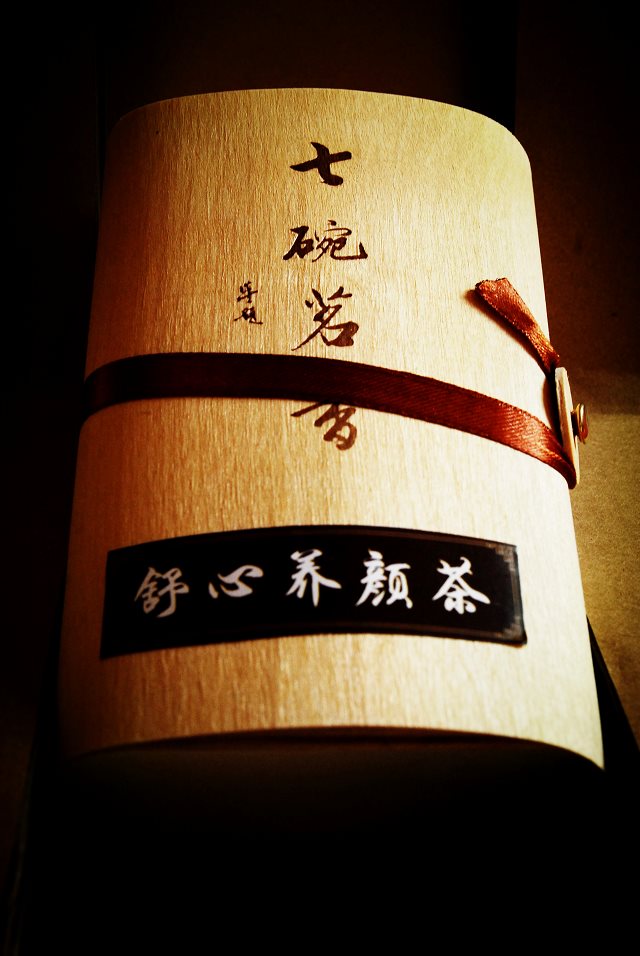 七碗茗香
舒心养颜茶